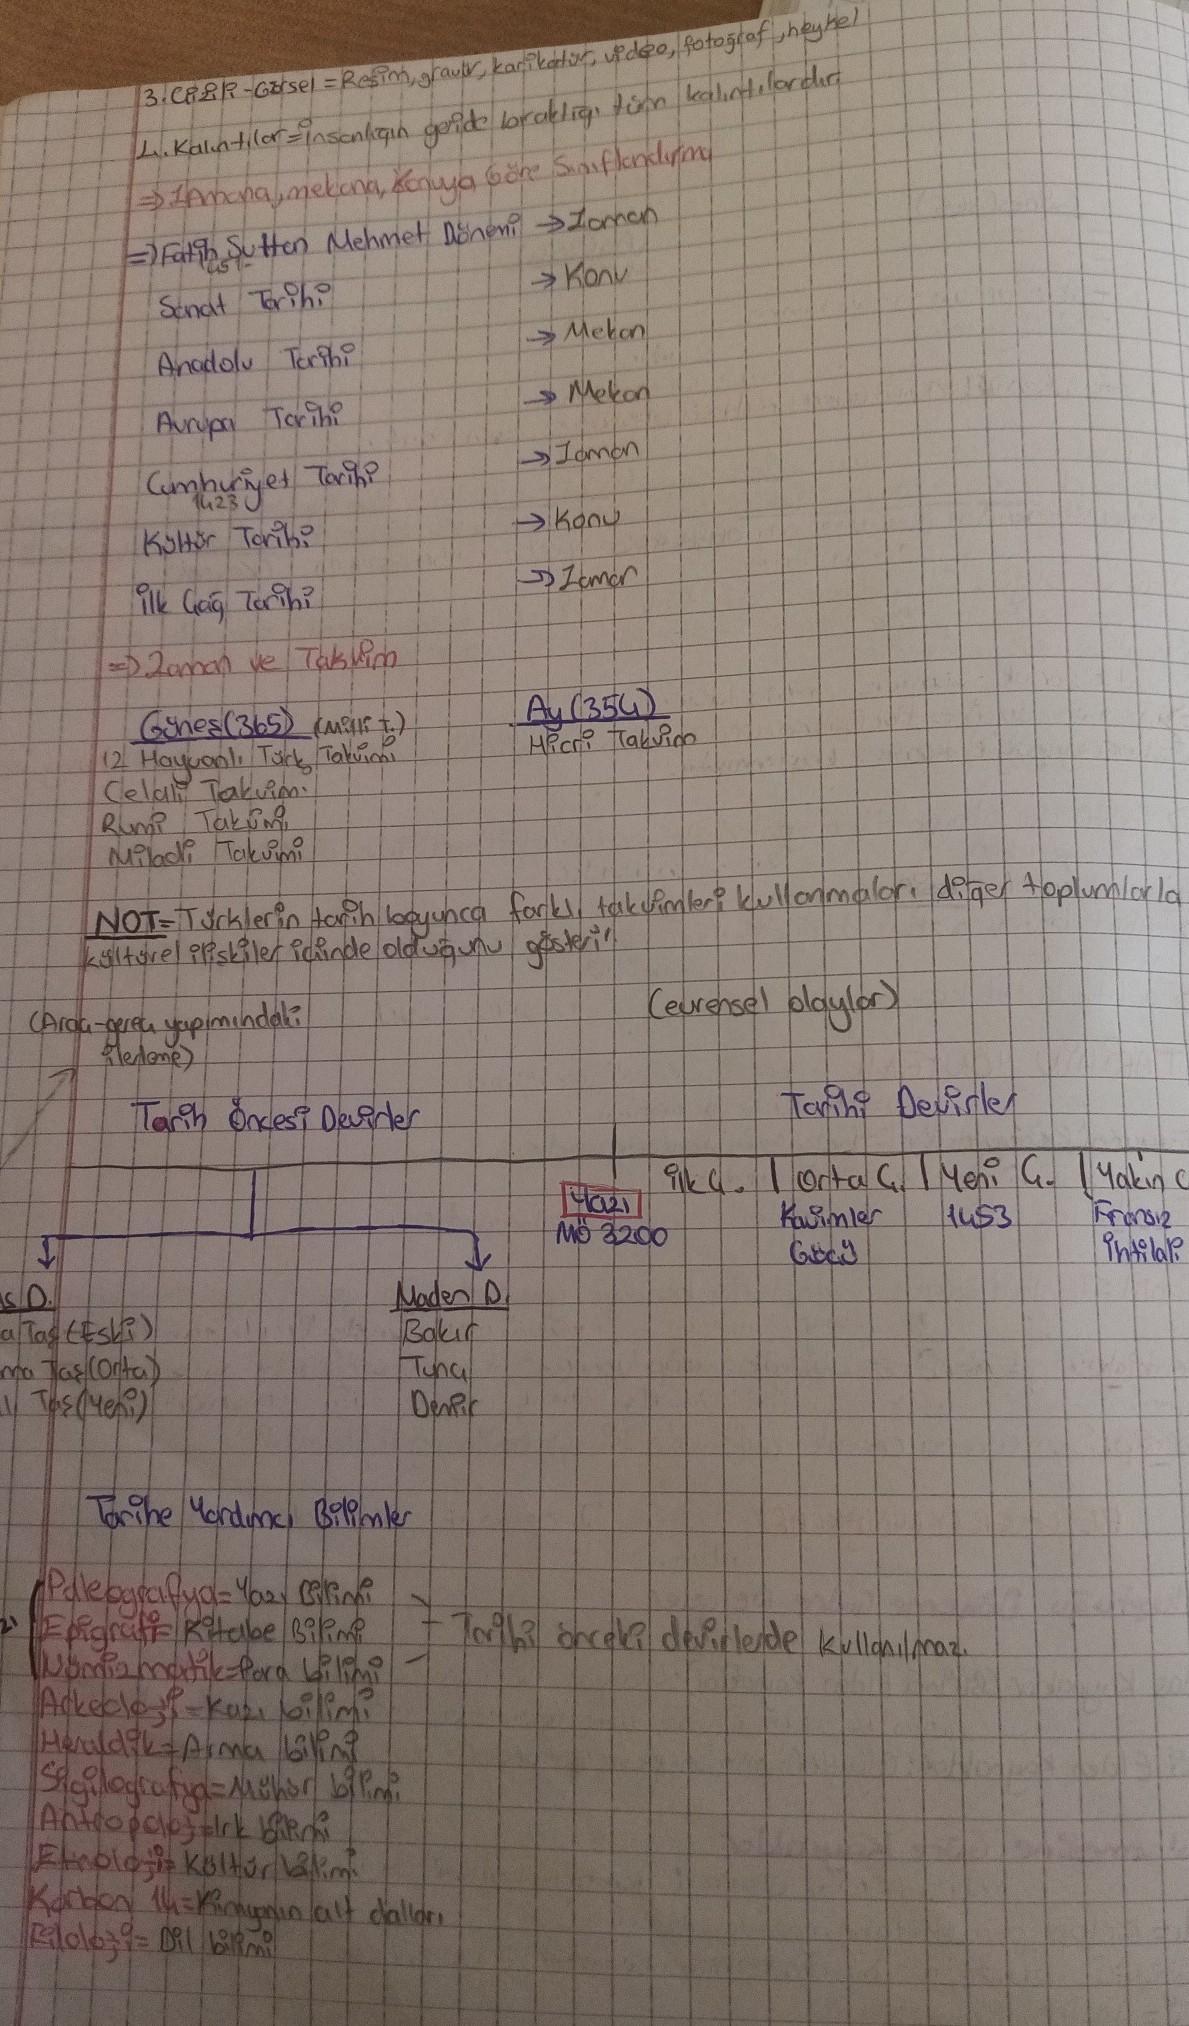 3. Çizili-Görsel = Resim, gravür, karikatür, video, fotoğraf, heykel
4. Kalıntılar = insanlığın geride bıraktığı tüm kalıntılardır
⇒ Zamana, mekana, Konuya Göre Sınıflandırma
⇒ Fatih Sultan Mehmet Dönemi → Zaman
Sanat Tarihi → Konu
Anadolu Tarihi → Mekan
Avrupa Tarihi → Mekan
Cumhuriyet Tarihi → Zaman
1423
Kültür Tarihi → Konu
İlk Çağ Tarihi → Zaman
⇒ Zaman ve Takvim
Güneş (365) (Milli T.) Ay (354)
12 Hayvanlı Türk Takvimi Hicri Takvim
Celali Takvim
Rumi Takvimi
Miladi Takvimi
NOT = Türklerin tarih boyunca farklı takvimleri kullanmaları diğer toplumlarla
kültürel ilişkiler içinde olduğunu gösterir
(Araç-gereç yapımındaki (evrensel olaylar)
ilerleme)
Tarih Öncesi Devirler Tarihi Devirler
İlk Ç. | Orta Ç. | Yeni Ç. | Yakın Ç
Yazı Kavimler 1453 Fransız
MÖ 3200 Göçü İhtilali
ş D. Maden D.
a Taş (Eski) Bakır
ma Taş (Orta) Tunç
lı Taş (Yeni) Demir
Tarihe Yardımcı Bilimler
Paleografya = Yazı Bilimi
Epigrafi = Kitabe Bilimi - Tarihi önceki devirlerde kullanılmaz.
Nümizmatik = Para bilimi
Arkeoloji = Kazı bilimi
Heraldik = Arma bilimi
Sigilografya = Mühür bilimi
Antropoloji = Irk bilimi
Etnoloji = Kültür bilimi
Karbon 14 = Kimyanın alt dalları
Filoloji = Dil bilimi